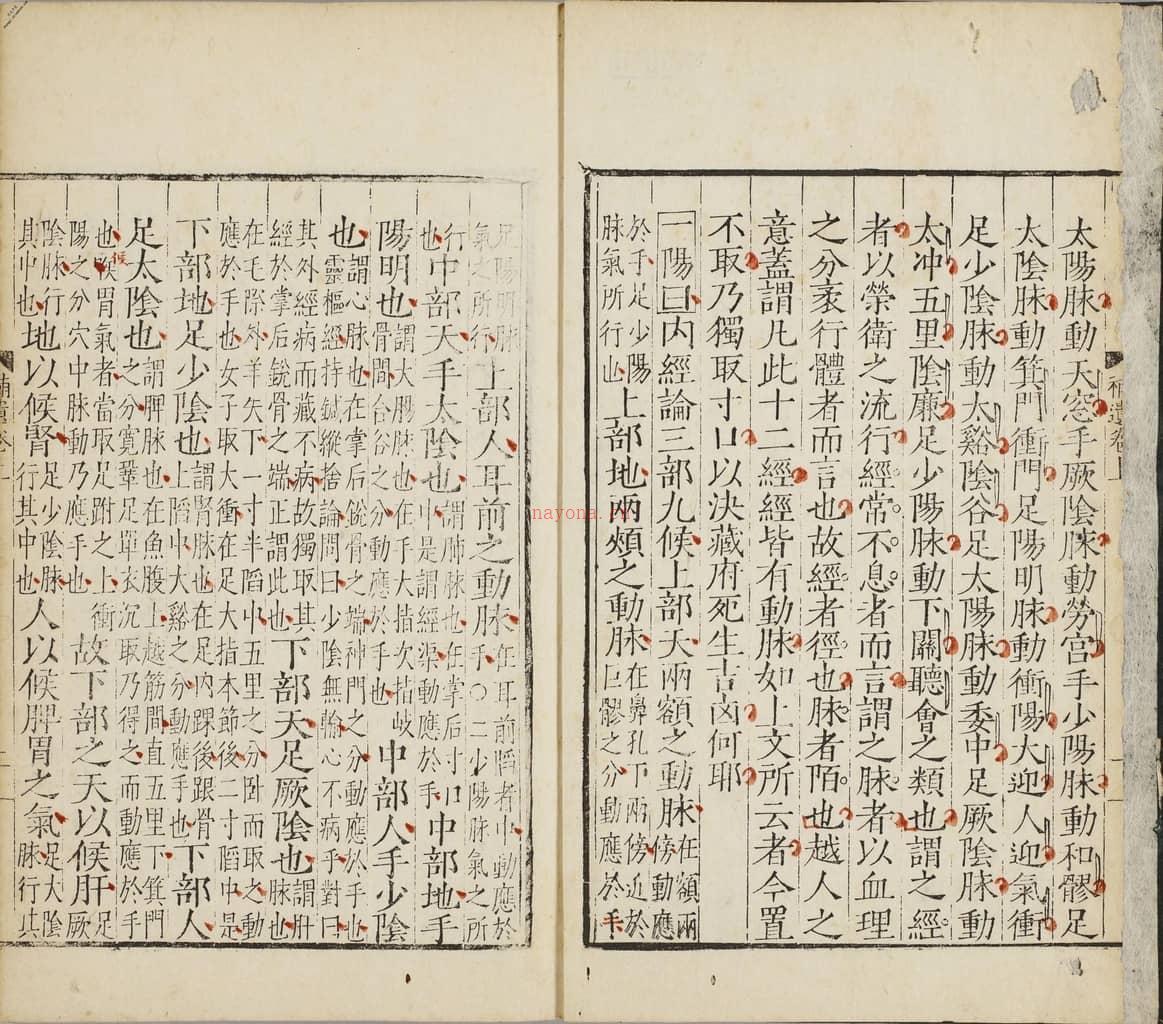 太陽脉動天窓手厥陰脉動勞宮手少陽脉動和髎足
太陰脉動箕門衝門足陽明脉動衝陽大迎人迎氣衝
足少陰脉動太谿陰谷足太陽脉動委中足厥陰脉動
太冲五里陰廉足少陽脉動下關聽會之類也謂之經
者以榮衛之流行經常不息者而言謂之脉者以血理
之分衺行體者而言也故經者徑也脉者陌也越人之
意蓋謂凡此十二經經皆有動脉如上文所云者今置
不取乃獨取寸口以決藏府死生吉凶何耶
一陽曰内經論三部九候上部天兩額之動脉在額兩傍動應
於手足少陽脉氣所行也上部地兩頰之動脉在鼻孔下兩傍近於巨髎之分動應於手
足陽明脉氣之所行上部人耳前之動脉在耳前陷者中動應於手〇二少陽脉氣之所
行也中部天手太陰也謂肺脉也在掌后寸口中是謂經渠動應於手中部地手
陽明也謂大腸脉也在手大指次指岐骨間合谷之分動應於手也中部人手少陰
也謂心脉也在掌后銳骨之端神門之分動應於手也靈樞經持鍼縱捨論問曰少陰無輸心不病乎對曰
其外經病而藏不病故獨取其經於掌后銳骨之端正謂此也下部天足厥陰也謂肝脉也
在毛際外羊矢下一寸半陷中五里之分卧而取之動應於手也女子取大衝在足大指本節後二寸陷中是
下部地足少陰也謂腎脉也在足内踝後跟骨上陷中大谿之分動應手也下部人
足太陰也謂脾脉也在魚腹上越筋間直五里下箕門之分寬鞏足單衣沉取乃得之而動應於手
也候胃氣者當取足跗之上衝陽之分穴中脉動乃應手也故下部之天以候肝足厥
陰脉行其中也地以候腎足少陰脉行其中也人以候脾胃之氣足大陰脉行其
補遺卷上